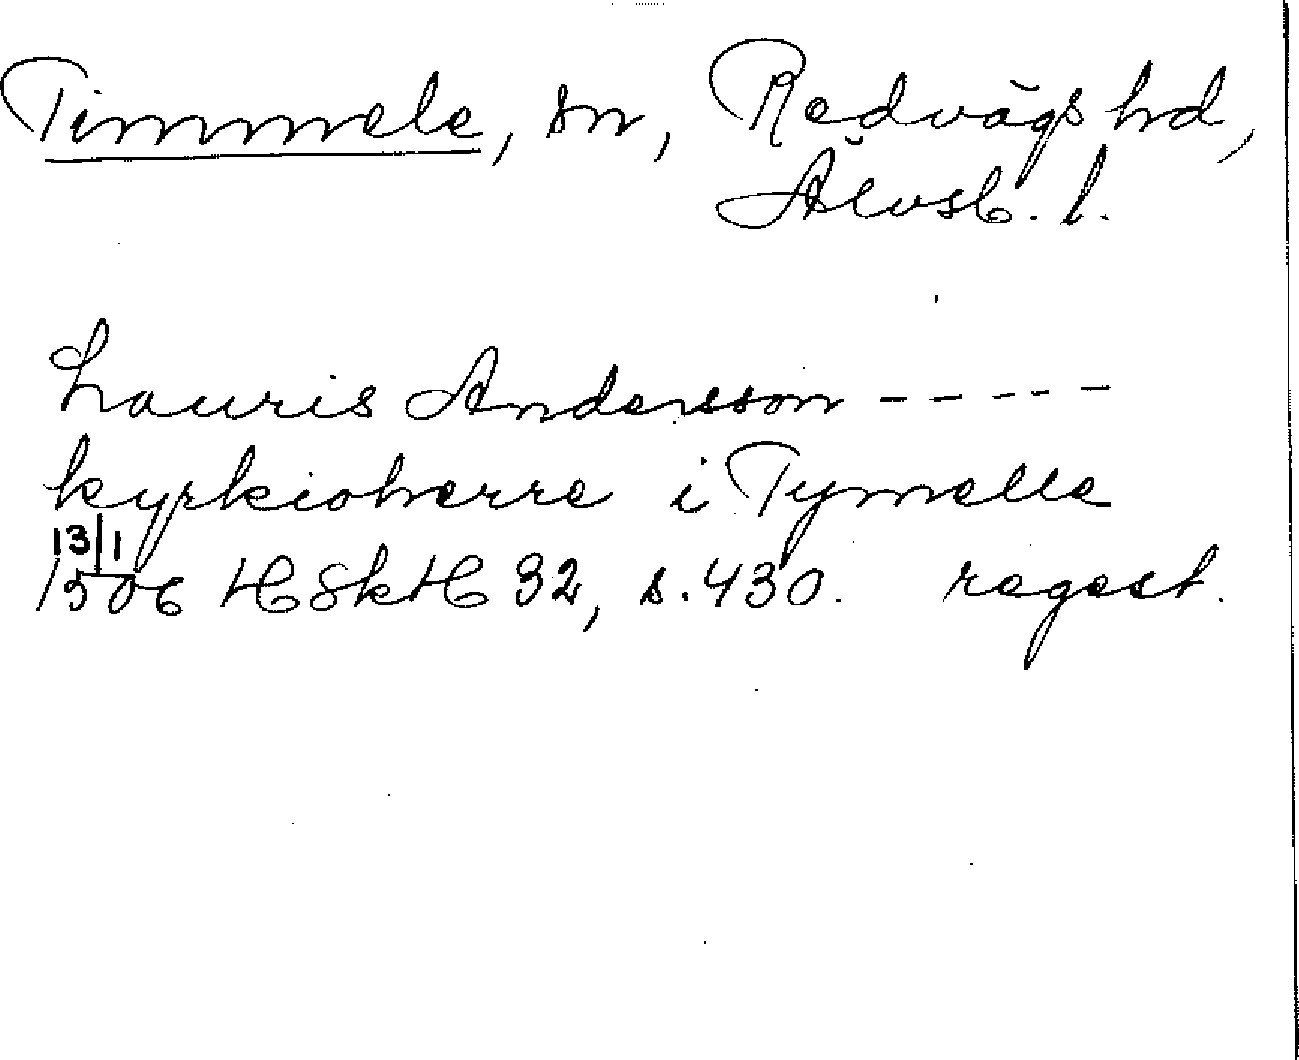 Timmele, sn, Redvägs hd,
Älvsb. l.
Lauris Andersson - - - - -
kyrkioherre i Tymelle
13/1
1506 HSkH 32, s. 430. regest.